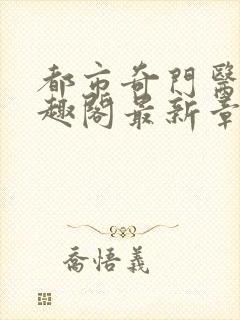 都市奇門醫
趣閣最新章
喬悟義